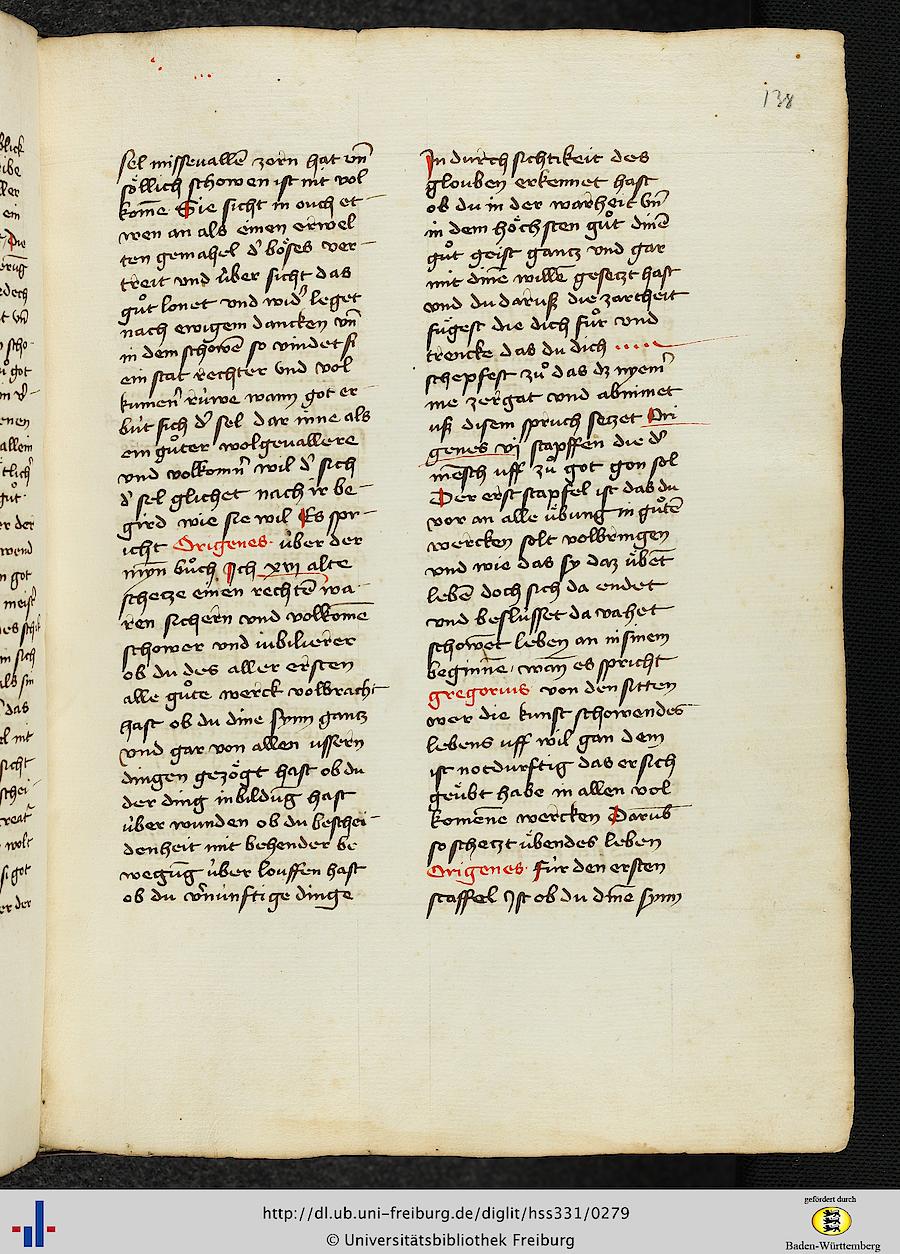 138
sel missevallē zorn hat vn̄
söllich schowen ist nit vol
kom̄e Sie sicht in ouch et
wen an als einen erwel
ten gemahel d' böses ver
treit vnd über sicht das
gůt lonet vnd wid' leget
nach ewigem dancken vn̄
in dem schöwē so vindet si
ein stat rechter vnd vol
kumen' rüwe wann got er
büt sich d' sel dar inne als
ein gůter wolgevallere
vnd volkomn' wil d' sich
d' sel glichet nach ir be
gird wie sie wil Es spr
icht Origenes über der
bůch Ich xvi alte
schetze einen rechtē wa
ren sichern vnd volkomē
schower vnd iubilierer
ob du des aller ersten
alle gůte werck volbracht
hast ob du dine synn gantz
vnd gar von allen vssern
dingen gezögt hast ob du
der ding inbildūg hast
über wunden ob du beschei
denheit mit behender be
wegūg über louffen hast
ob du v'nünftige dinge
In durchsichtikeit des
glouben erkennet hast
ob du in der warheit vn̄
in dem höchsten gůt dinē
gůt geist gantz vnd gar
mit dinē willē gesetzt hast
vnd du daruß die zartheit
fügest die dich fůr vnd
trencke das du dich
schepfest zů das dz nyem'
me zergat vnd abnimet
uß disem spruch setzet Ori
genes vj stapffen die d'
mēsch uff zů got gon sol
Der erst stapfel ist das du
vor an alle übung in gůtē
wercken solt volbringen
vnd wie das sy daz übēt
lebē doch sich da endet
vnd beslüsset da vahet
schowēt leben an in sinem
beginnē wan es spricht
gregorius von den sitten
wer die kunst schowendes
lebens uff wil gan dem
ist notdurftig das er sich
geübt habe in allen vol
komēne wercken Darūb
so schetzt übendes leben
Origenes Für den ersten
staffel Ist ob du dinē synn
http://dl.ub.uni-freiburg.de/diglit/hss331/0279
© Universitätsbibliothek Freiburg
gefördert durch
Baden-Württemberg